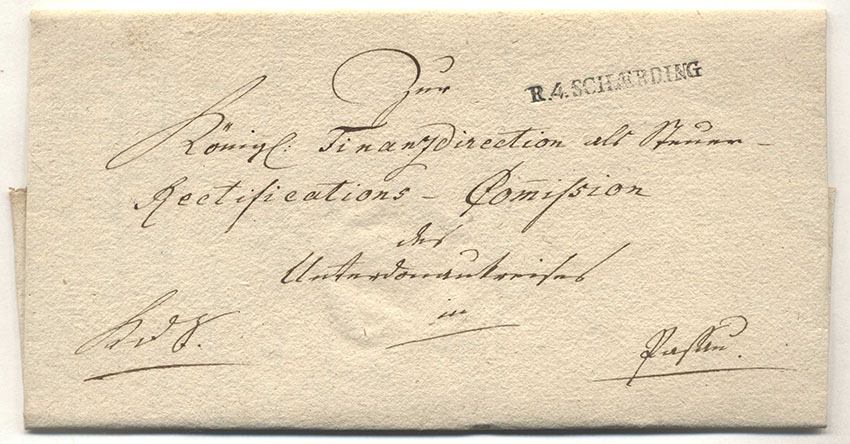 Zur
R.4.SCHÆRDING
Königl: Finanzdirection als Steuer-
Rectifications - Com̄ißion
des
Unterdonaukreises
in
Passau.